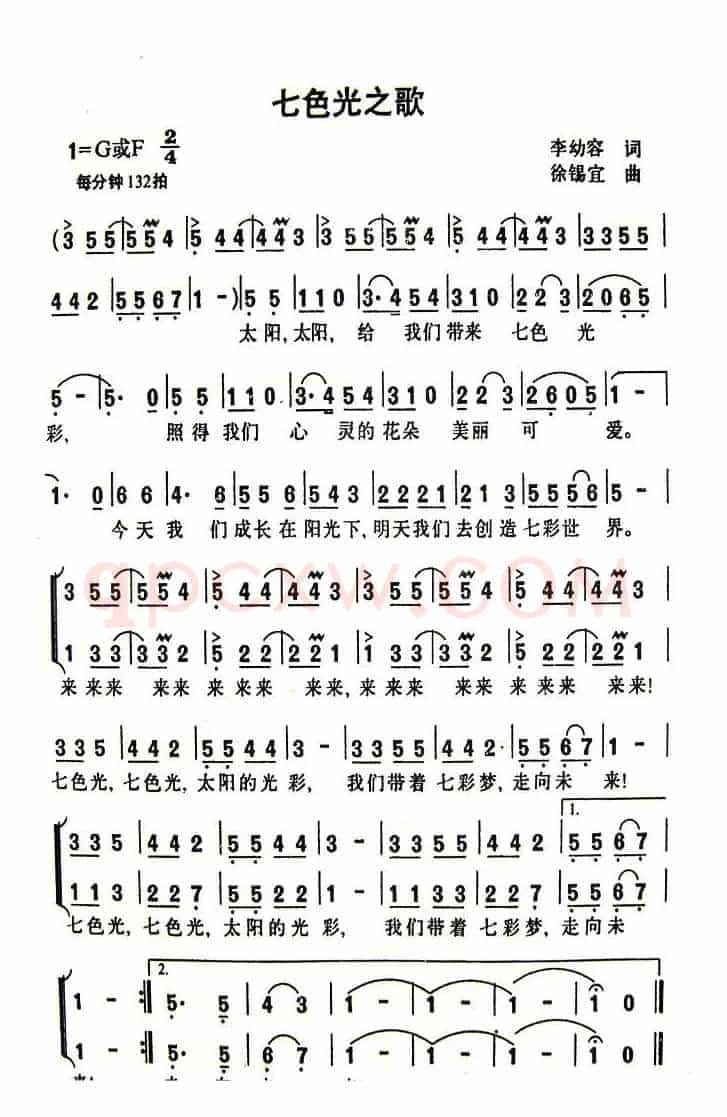 七色光之歌
1=G或F 2/4
李幼容 词
每分钟132拍
徐锡宜 曲
(3 55 554 | 5 44 443 | 3 55 554 | 5 44 443 | 3355 |
442 | 5567 | 1 - ) | 5 5 | 110 | 3·454 | 310 | 223 | 2065 |
太阳,太阳, 给 我们带来 七色 光
5 - | 5· 0 | 5 5 | 110 | 3·454 | 310 | 223 | 2605 | 1 - |
彩, 照得我们 心 灵的花朵 美丽 可 爱。
1· 0 | 66 | 4· 6 | 5565 | 543 | 2221 | 223 | 5556 | 5 - |
今天我 们成长在阳光下,明天我们去创造七彩世 界。
qpcxw.com
3 55 554 | 5 44 443 | 3 55 554 | 5 44 443 |
1 33 332 | 5 22 221 | 1 33 332 | 5 22 221 |
来来来 来来 来 来来 来来,来来来 来来 来 来来 来来!
335 | 442 | 5544 | 3 - | 3355 | 442 | 5567 | 1 - |
七色光,七色光,太阳的光彩, 我们带着七彩梦,走向未 来!
1.
335 | 442 | 5544 | 3 - | 3355 | 442 | 5567 |
113 | 227 | 5522 | 1 - | 1133 | 227 | 5567 |
七色光,七色光,太阳的光 彩, 我们带着 七彩梦,走向未
2.
1 - :| 5· 5 | 4 3 | 1 - | 1 - | 1 - | 1 0 ||
1 - :| 5· 5 | 6 7 | 1 - | 1 - | 1 - | 1 0 ||